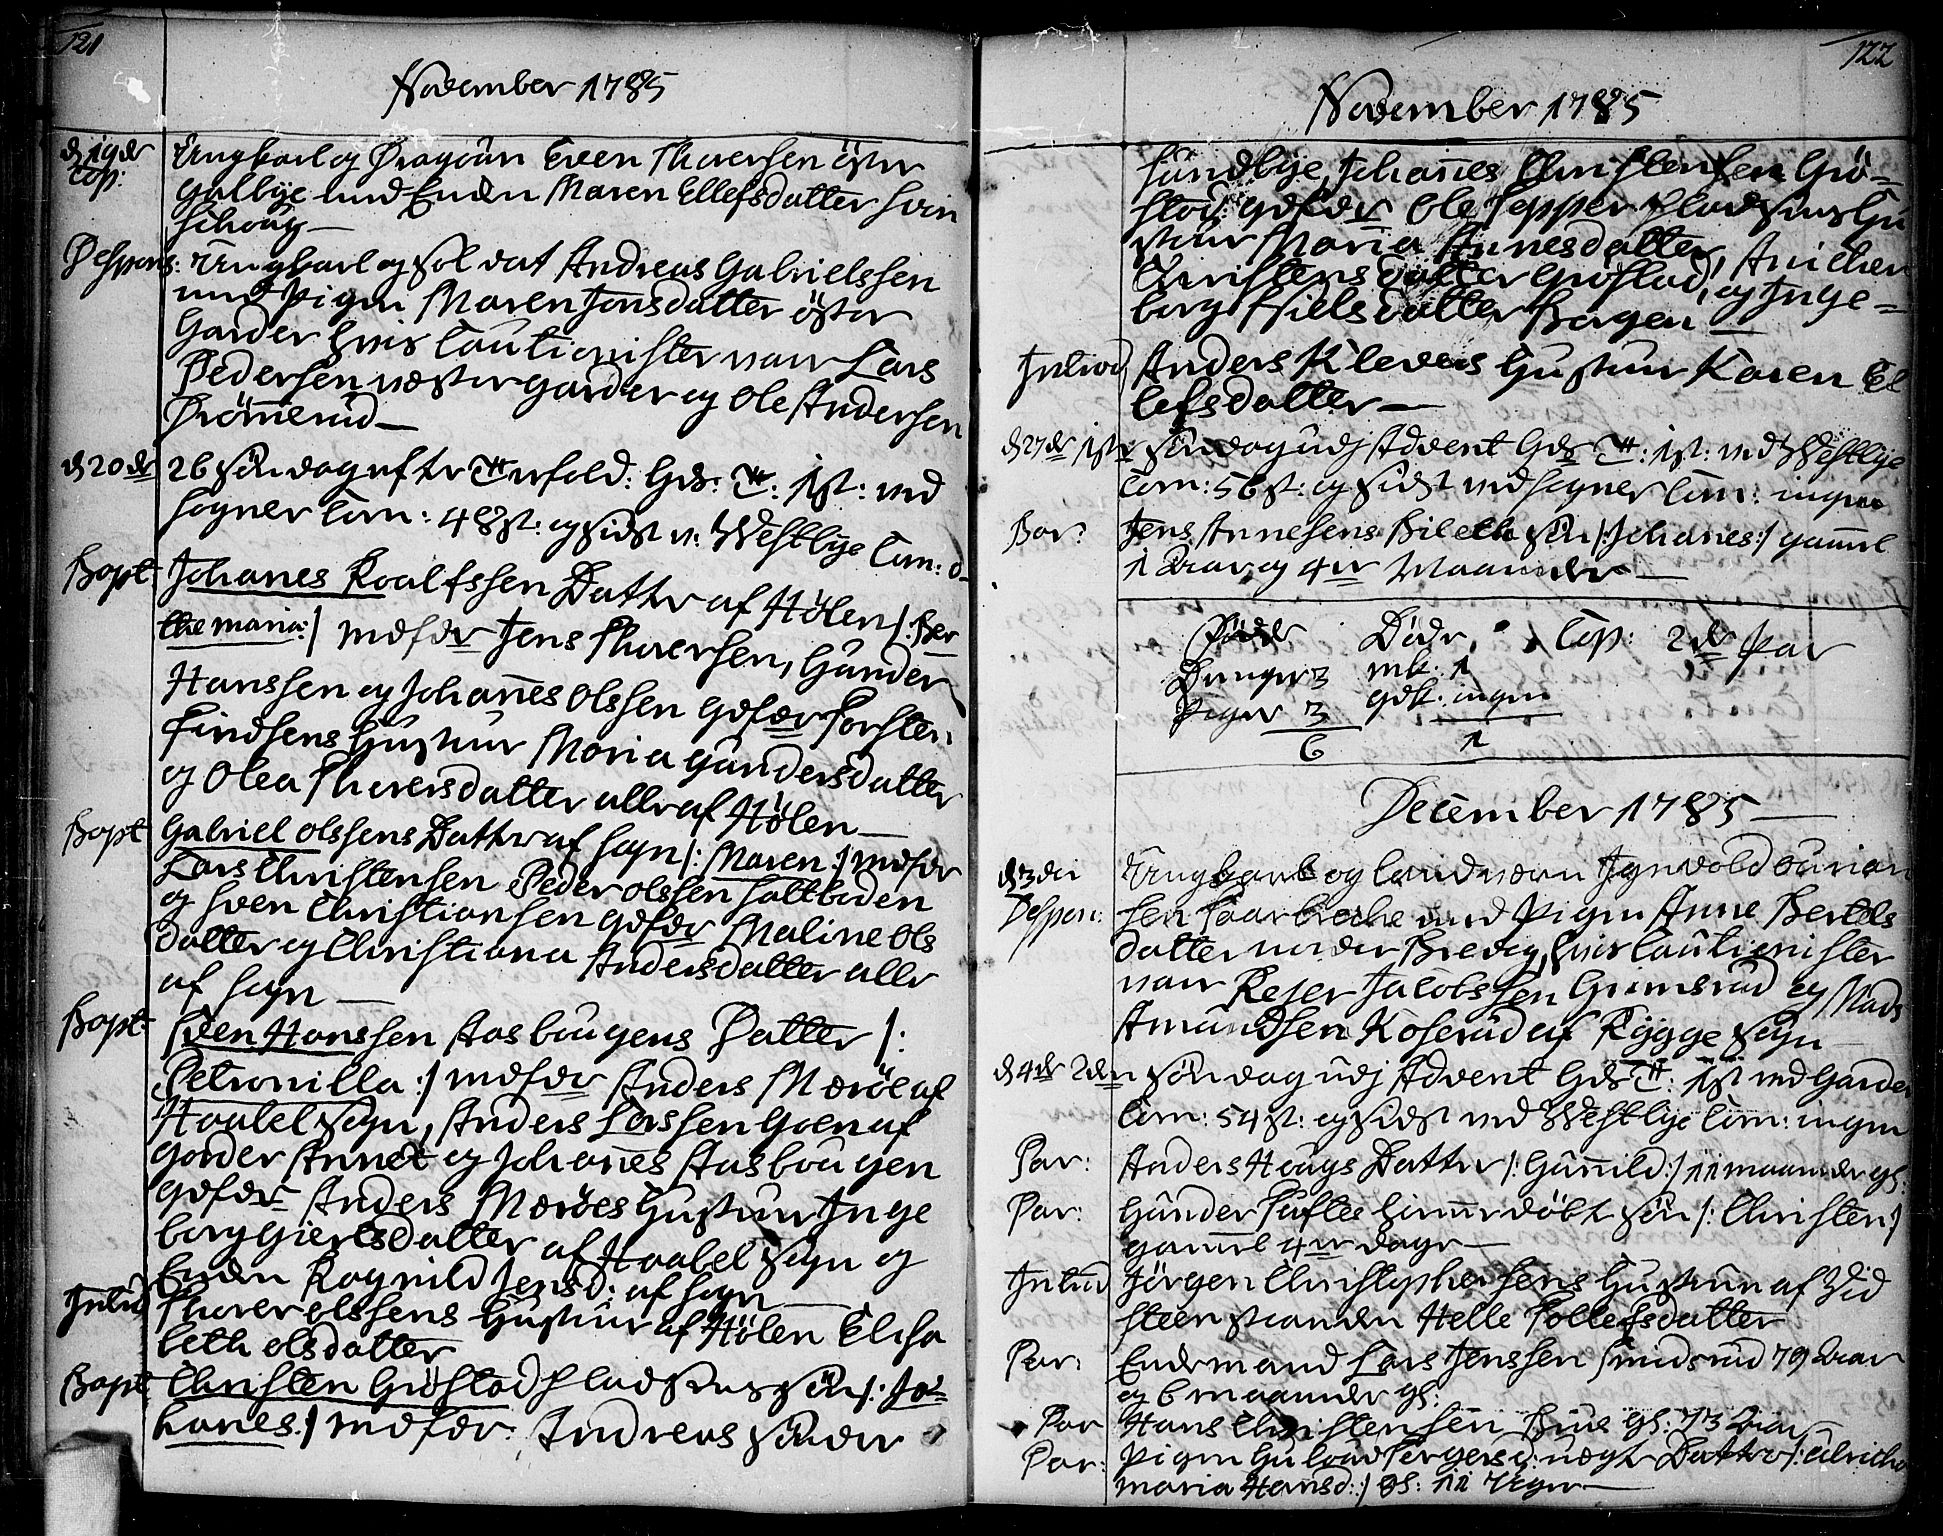 121
November 1785
d 19de Cop: Ungkarl og Dragoun Even Thoersen öster
Galbye med Enken Maren Ellefsdatter Svin
schoug —
Despons: Ungkarl og Soldat Andreas Gabrielssen
med Pigen Maren Jonsdatter öster
Garder hvis Cautionister var Lars
Pedersen væster garder og Ole Andersen
Drömerud —
d 20de 26 Söndag efter Trefold: Gds: T: 1st: ved
Sogner Com: 48 st: og sidst v: Westbye Com: 0 —
Bapt: Johanes Roalfssen Datter af Hölen /: Ber
the maria :/ mdfdr Jens Thoersen, Gunder
Hanssen og Johañes Olssen gdfdr Torsten
findsens Hustrue Maria gundersdatter
og Olea Thoresdatter alle af Hölen —
Bapt Gabriel Olssens Datter af Sogn /: Maren :/ mdfdr
Lars Christensen Peder Olssen Saltboden
og Sven Christiansen gdfdr Maline Ols
datter og Christiana Andersdatter alle
af Sogn —
Bapt: Sven Hanssen Aasbougens Datter /:
Petronilla :/ mdfdr Anders Meröe af
Haabel Sogn, Anders Larssen Goen af
garder Annex og Johañes Aasbougen
gdfdr Anders Meröes Hustrue Inge
borg Giertsdatter af Haabel Sogn og
Enken Ragnild Jensd: af Sogn —
Introd Thorer Olssens Hustrue af Hölen Elisa
beth Olsdatter
Bapt: Christen Gröstad Pladsens Sön /: Jo=
hanes :/ mdfdr. Andreas Sönder
122
November 1785
Sundbye, Johañes Christensen Grö=
stad: gdfdr Ole Tepper Pladsens Hu
strue Maria Annesdatter, Anichen
Christensdatter Gröstad, og Inge=
borg Nielsdatter Hagen —
Introd Anders Klevens Hustrue Karen El
lefsdatter —
d 27de 1ste Söndag udj Advent Gds T: 1st: ved Westbye
Com: 56 st: og sidst ved Sogner Com: ingen
Par: Jens Annesens Sön /: Johanes :/ gaml
1 Aar og 4re Maaneder —
Födde Döde Cop: 2de Par
Drenge 3 mk: 1
Piger 3 qdk: ingen
6 1
December 1785 —
d 3die Despon: Ungkarl og landværn Ingvold
sen Saarbrche med Pigen Anne Bertels
datter neder Brevig, hvis Cautionister
var Rejer Jacobssen Grimsrud og Mads
Amundsen Koserud af Rygge Sogn —
d 4de 2den Söndag udj Advent Gds T: 1st ved Garder
Com: 54 st: og sidst ved Westbye Com: ingen
Par: Anders Hougs Datter /: Guñild :/ 11 maaneder gl:
Par: Gunder Tuftes hiemedöbt Sön /: Christen :/
gaml 4re dage —
Introd Jörgen Christophersens Hustrue af Hvid
steen stranden Helle Tollefsdatter
Par: Enkemand Lars Jenssen Smidsrud 79 Aar
og 6 maaneder gl:
Par Hans Christensen Bue gl: 73 Aar
Par: Pigen Gulaud Torgersd: uægte Datter /: Ulricha
maria Hansd: :/ gl: 11 Uger —